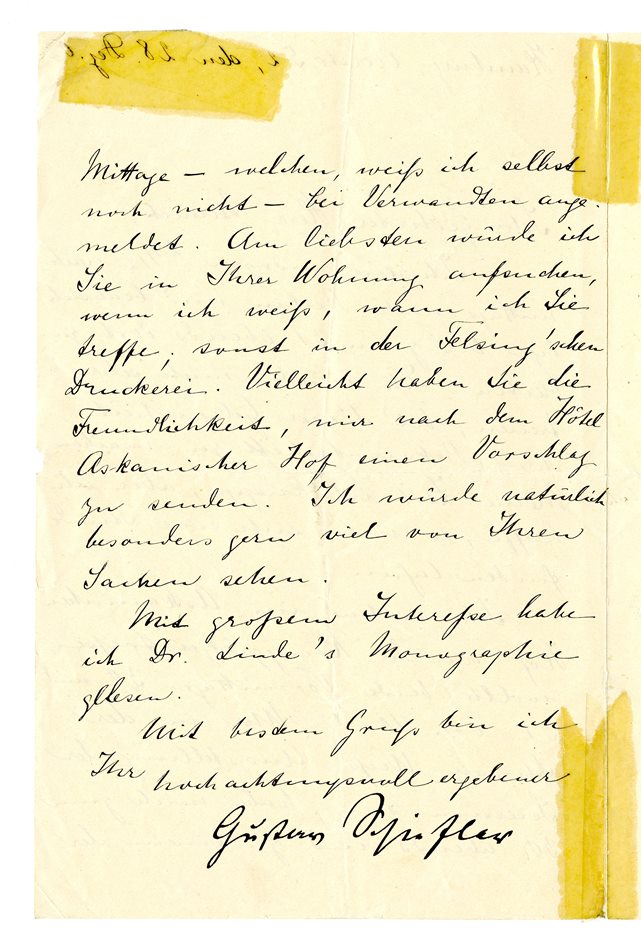 Mittage – welchen, weiß ich selbst
noch nicht – bei Verwandten ange-
meldet. Am liebsten würde ich
Sie in Ihrer Wohnung aufsuchen,
wenn ich weiß, wann ich Sie
treffe, sonst in der Felsing'schen
Druckerei. Vielleicht haben Sie die
Freundlichkeit, mir nach dem Hôtel
Askanischer Hof einen Vorschlag
zu senden. Ich würde natürlich
besonders gern viel von Ihren
Sachen sehen.
Mit großem Interesse habe
ich Dr. Linde's Monographie
gelesen.
Mit bestem Gruß bin ich
Ihr hochachtungsvoll ergebener
Gustav Schiefler